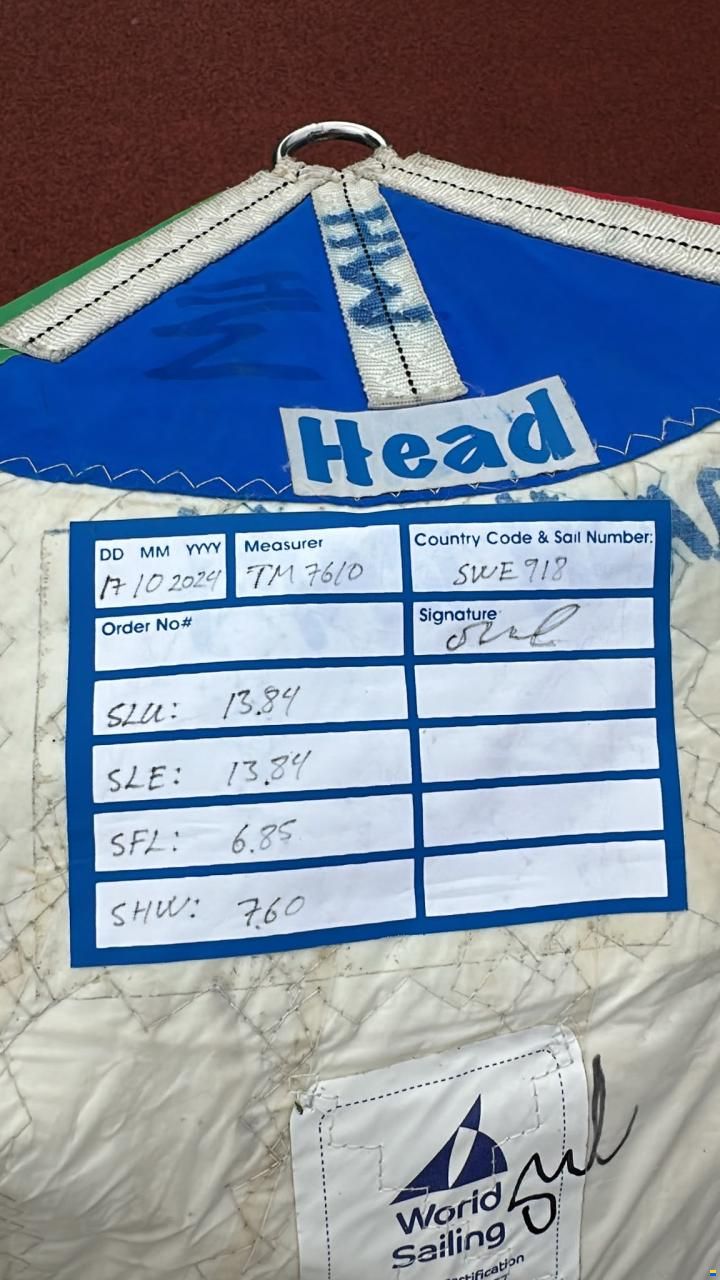 Head
DD MM YYYY
17 10 2024
Measurer
TM 7610
Country Code & Sail Number:
SWE 918
Order No#
Signature
SLU: 13.84
SLE: 13.84
SFL: 6.85
SHW: 7.60
World
Sailing